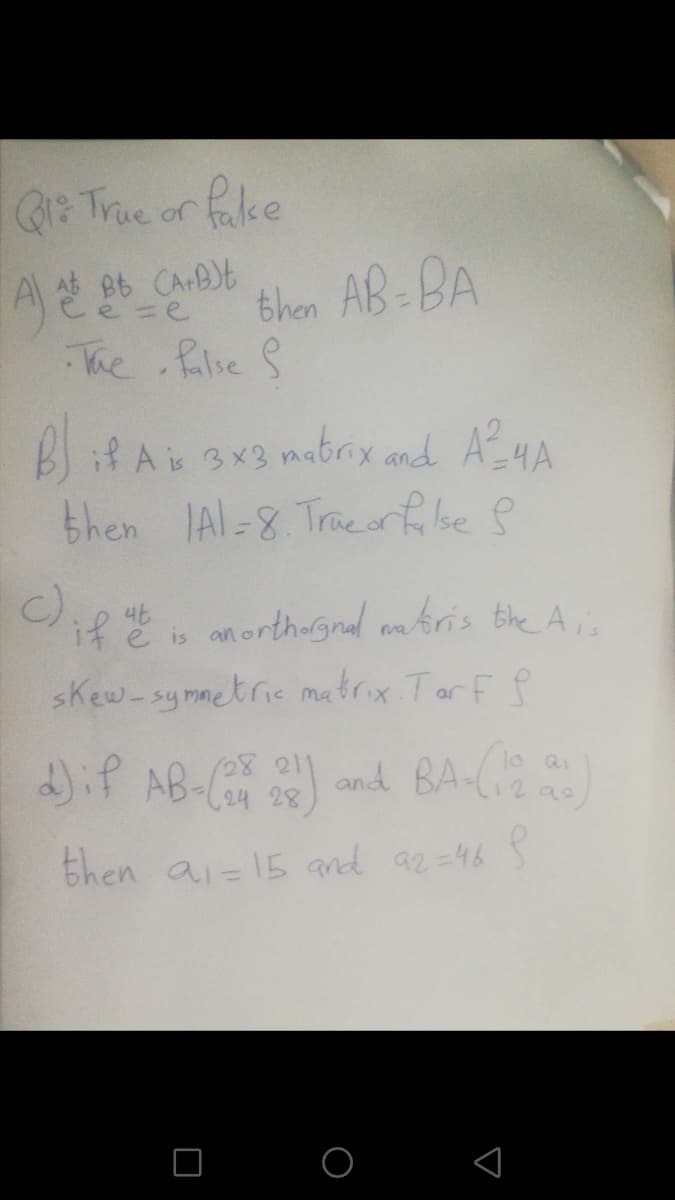 Q1: True or false
A) e^At e^Bt = e^(A+B)t then AB=BA
. True . false ?
B) if A is 3x3 matrix and A^2=4A
then |A|=8. True or false ?
c) if e^4t is an orthorgnal matris the A is
skew-symmetric matrix. T or F ?
d) if AB=(28 21 24 28) and BA=(10 a1 12 a2)
then a1=15 and a2=46 ?